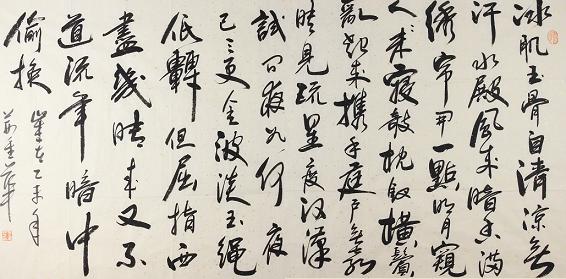 冰肌玉骨自清涼無
汗水殿風来暗香滿
繡帘開一點明月窺
人未寢敧枕釵橫鬢
亂起来攜手庭戶無聲
時見疏星度河漢
試問夜如何夜
已三更金波淡玉繩
低轉但屈指西
幾時来又不
道流年暗中
偷換
歲在乙未年